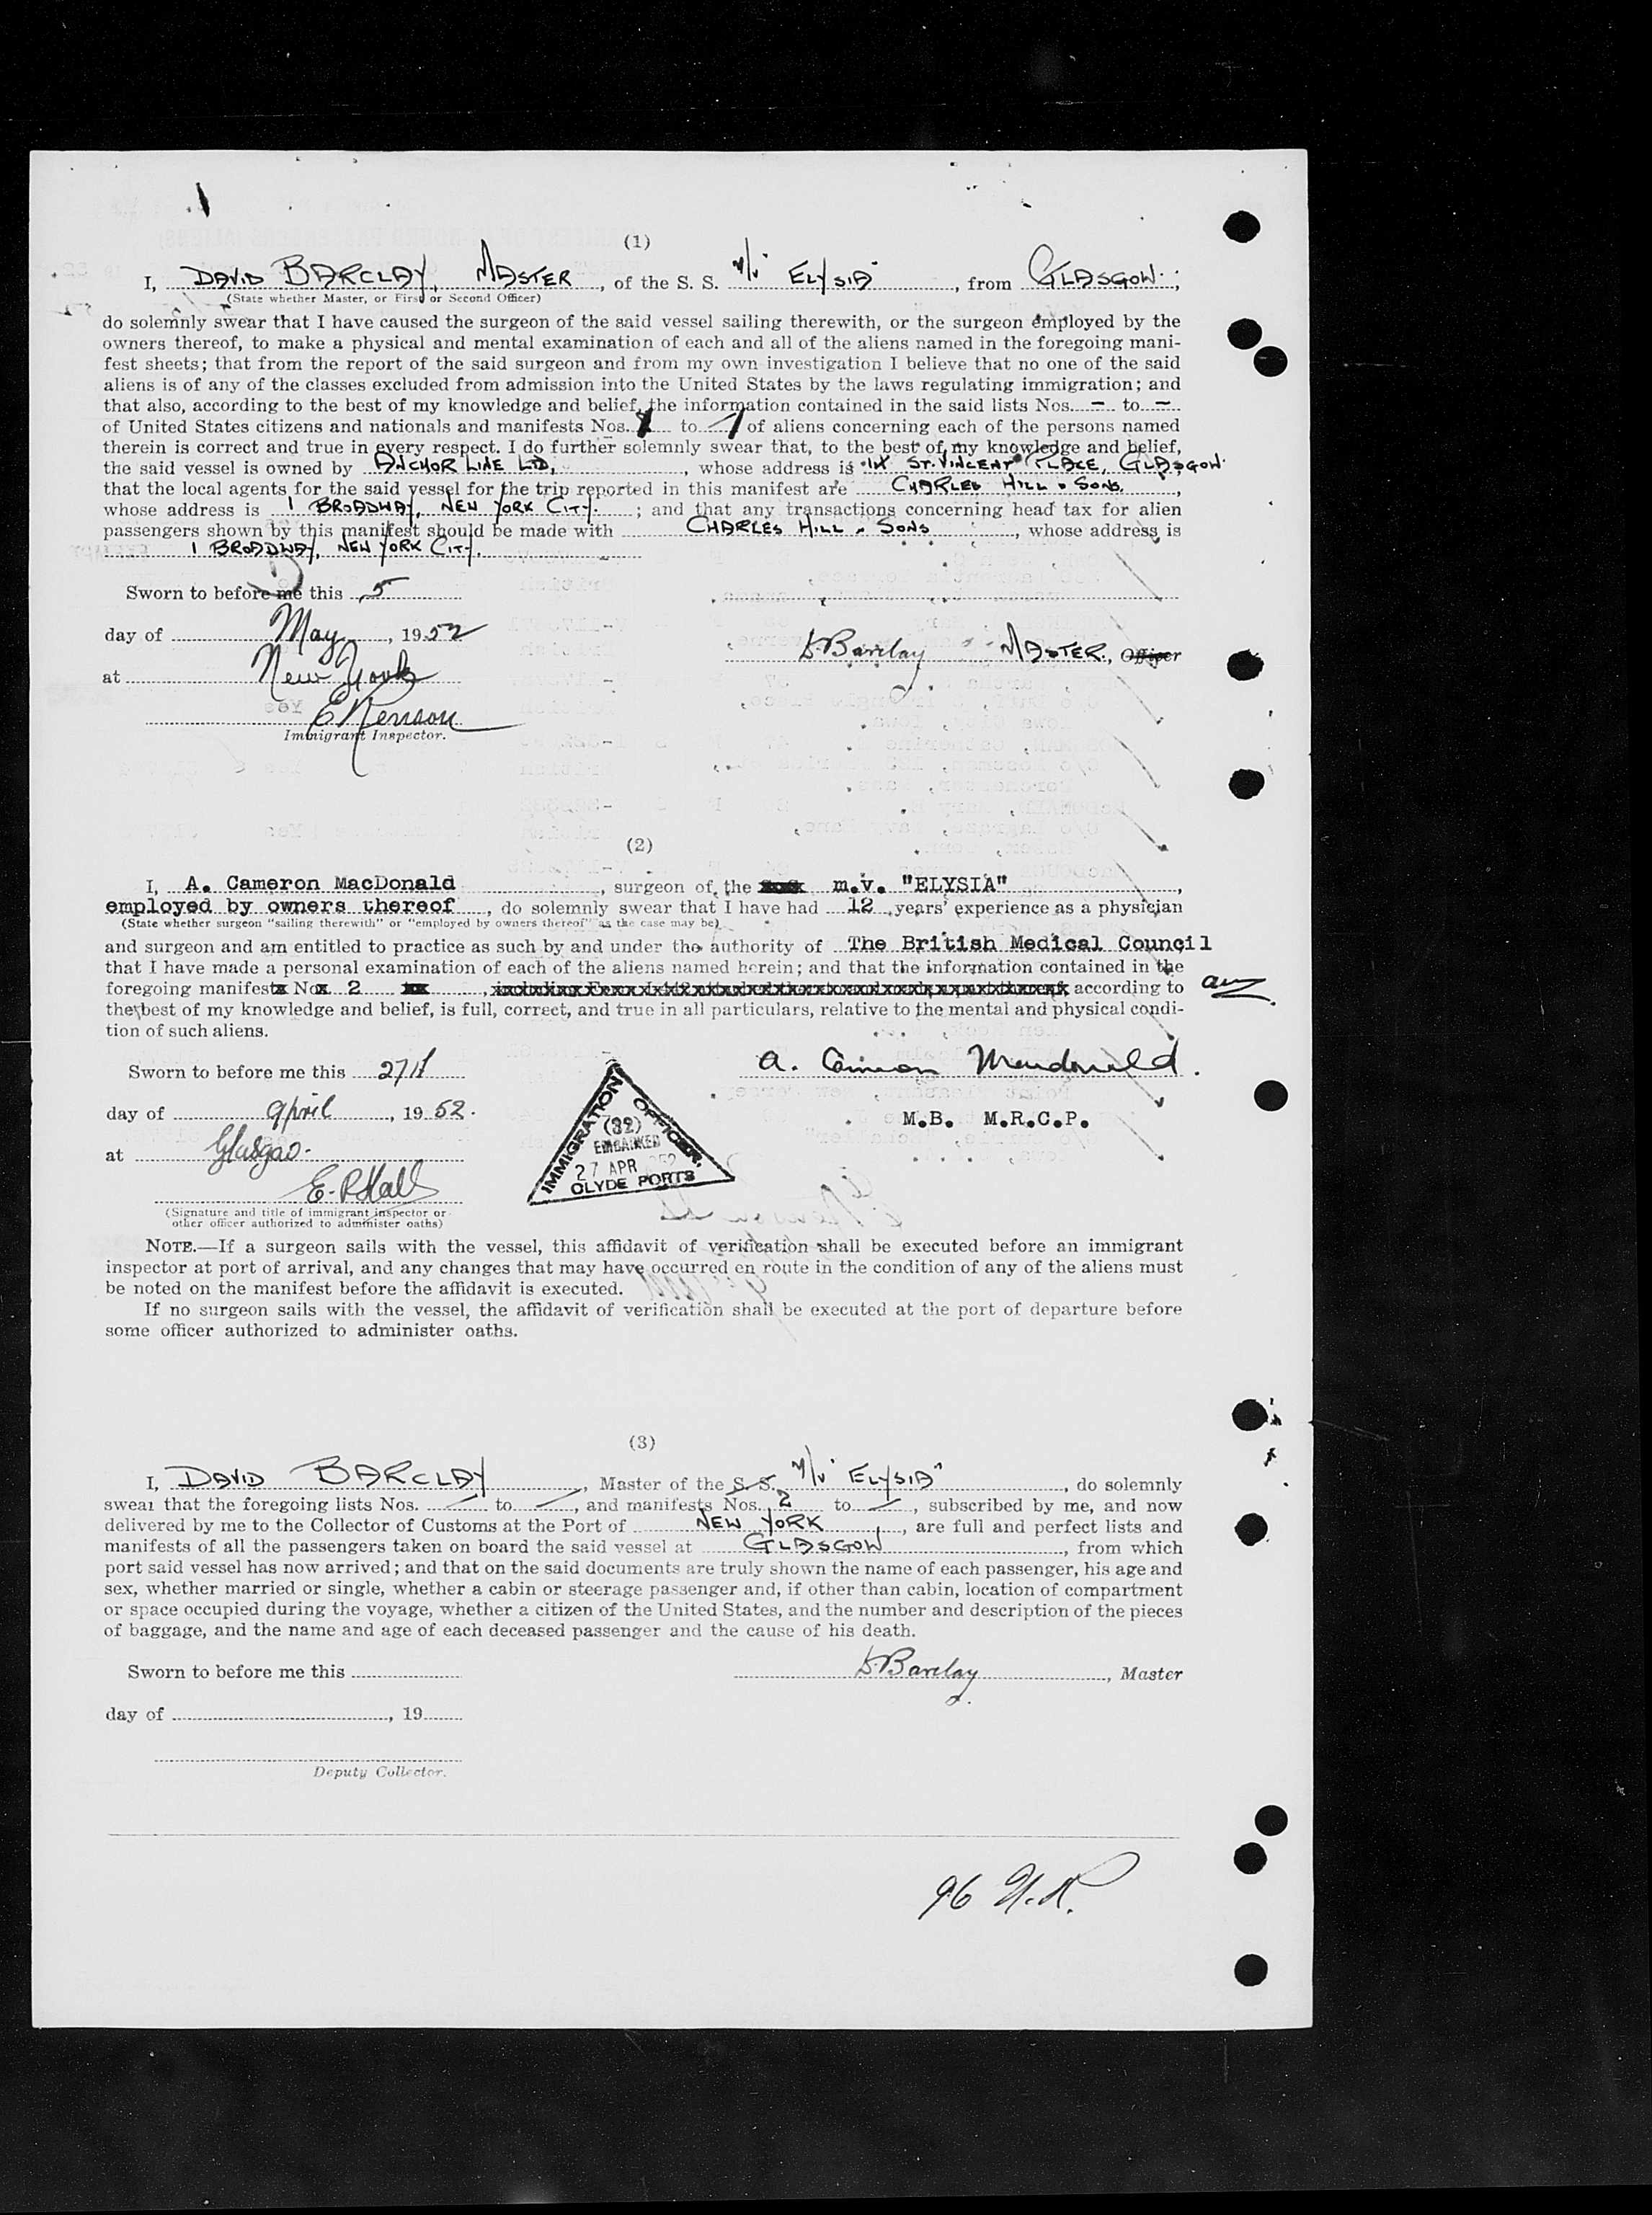 (1)
I, DAVID BARCLAY, MASTER, of the S. S. M/V "ELYSIA", from GLASGOW;
(State whether Master, or First or Second Officer)
do solemnly swear that I have caused the surgeon of the said vessel sailing therewith, or the surgeon employed by the
owners thereof, to make a physical and mental examination of each and all of the aliens named in the foregoing mani-
fest sheets; that from the report of the said surgeon and from my own investigation I believe that no one of the said
aliens is of any of the classes excluded from admission into the United States by the laws regulating immigration; and
that also, according to the best of my knowledge and belief, the information contained in the said lists Nos. - to -
of United States citizens and nationals and manifests Nos. to of aliens concerning each of the persons named
therein is correct and true in every respect. I do further solemnly swear that, to the best of my knowledge and belief,
the said vessel is owned by ANCHOR LINE LTD., whose address is ST. VINCENT PLACE, GLASGOW
that the local agents for the said vessel for the trip reported in this manifest are CHARLES HILL & SONS,
whose address is 1 BROADWAY, NEW YORK CITY.; and that any transactions concerning head tax for alien
passengers shown by this manifest should be made with CHARLES HILL & SONS, whose address is
1 BROADWAY, NEW YORK CITY.
Sworn to before me this 5
day of May, 1952
D Barclay MASTER, Officer
at New York
Immigrant Inspector.
(2)
I, A. Cameron MacDonald, surgeon of the m.v. "ELYSIA",
employed by owners thereof, do solemnly swear that I have had 12 years' experience as a physician
(State whether surgeon "sailing therewith" or "employed by owners thereof" as the case may be)
and surgeon and am entitled to practice as such by and under the authority of The British Medical Council
that I have made a personal examination of each of the aliens named herein; and that the information contained in the
foregoing manifest No 2 according to
the best of my knowledge and belief, is full, correct, and true in all particulars, relative to the mental and physical condi-
tion of such aliens.
Sworn to before me this 27th
A. Cameron Macdonald.
day of April, 1952.
M.B. M.R.C.P.
at Glasgow.
E. P. Hall
(Signature and title of immigrant inspector or
other officer authorized to administer oaths)
IMMIGRATION OFFICER,
(32)
EMBARKED
27 APR 1952
CLYDE PORTS
NOTE.—If a surgeon sails with the vessel, this affidavit of verification shall be executed before an immigrant
inspector at port of arrival, and any changes that may have occurred en route in the condition of any of the aliens must
be noted on the manifest before the affidavit is executed.
If no surgeon sails with the vessel, the affidavit of verification shall be executed at the port of departure before
some officer authorized to administer oaths.
(3)
I, DAVID BARCLAY, Master of the S. S. M/V "ELYSIA", do solemnly
swear that the foregoing lists Nos. to, and manifests Nos. 2 to, subscribed by me, and now
delivered by me to the Collector of Customs at the Port of NEW YORK, are full and perfect lists and
manifests of all the passengers taken on board the said vessel at GLASGOW, from which
port said vessel has now arrived; and that on the said documents are truly shown the name of each passenger, his age and
sex, whether married or single, whether a cabin or steerage passenger and, if other than cabin, location of compartment
or space occupied during the voyage, whether a citizen of the United States, and the number and description of the pieces
of baggage, and the name and age of each deceased passenger and the cause of his death.
Sworn to before me this
D Barclay, Master
day of, 19
Deputy Collector.